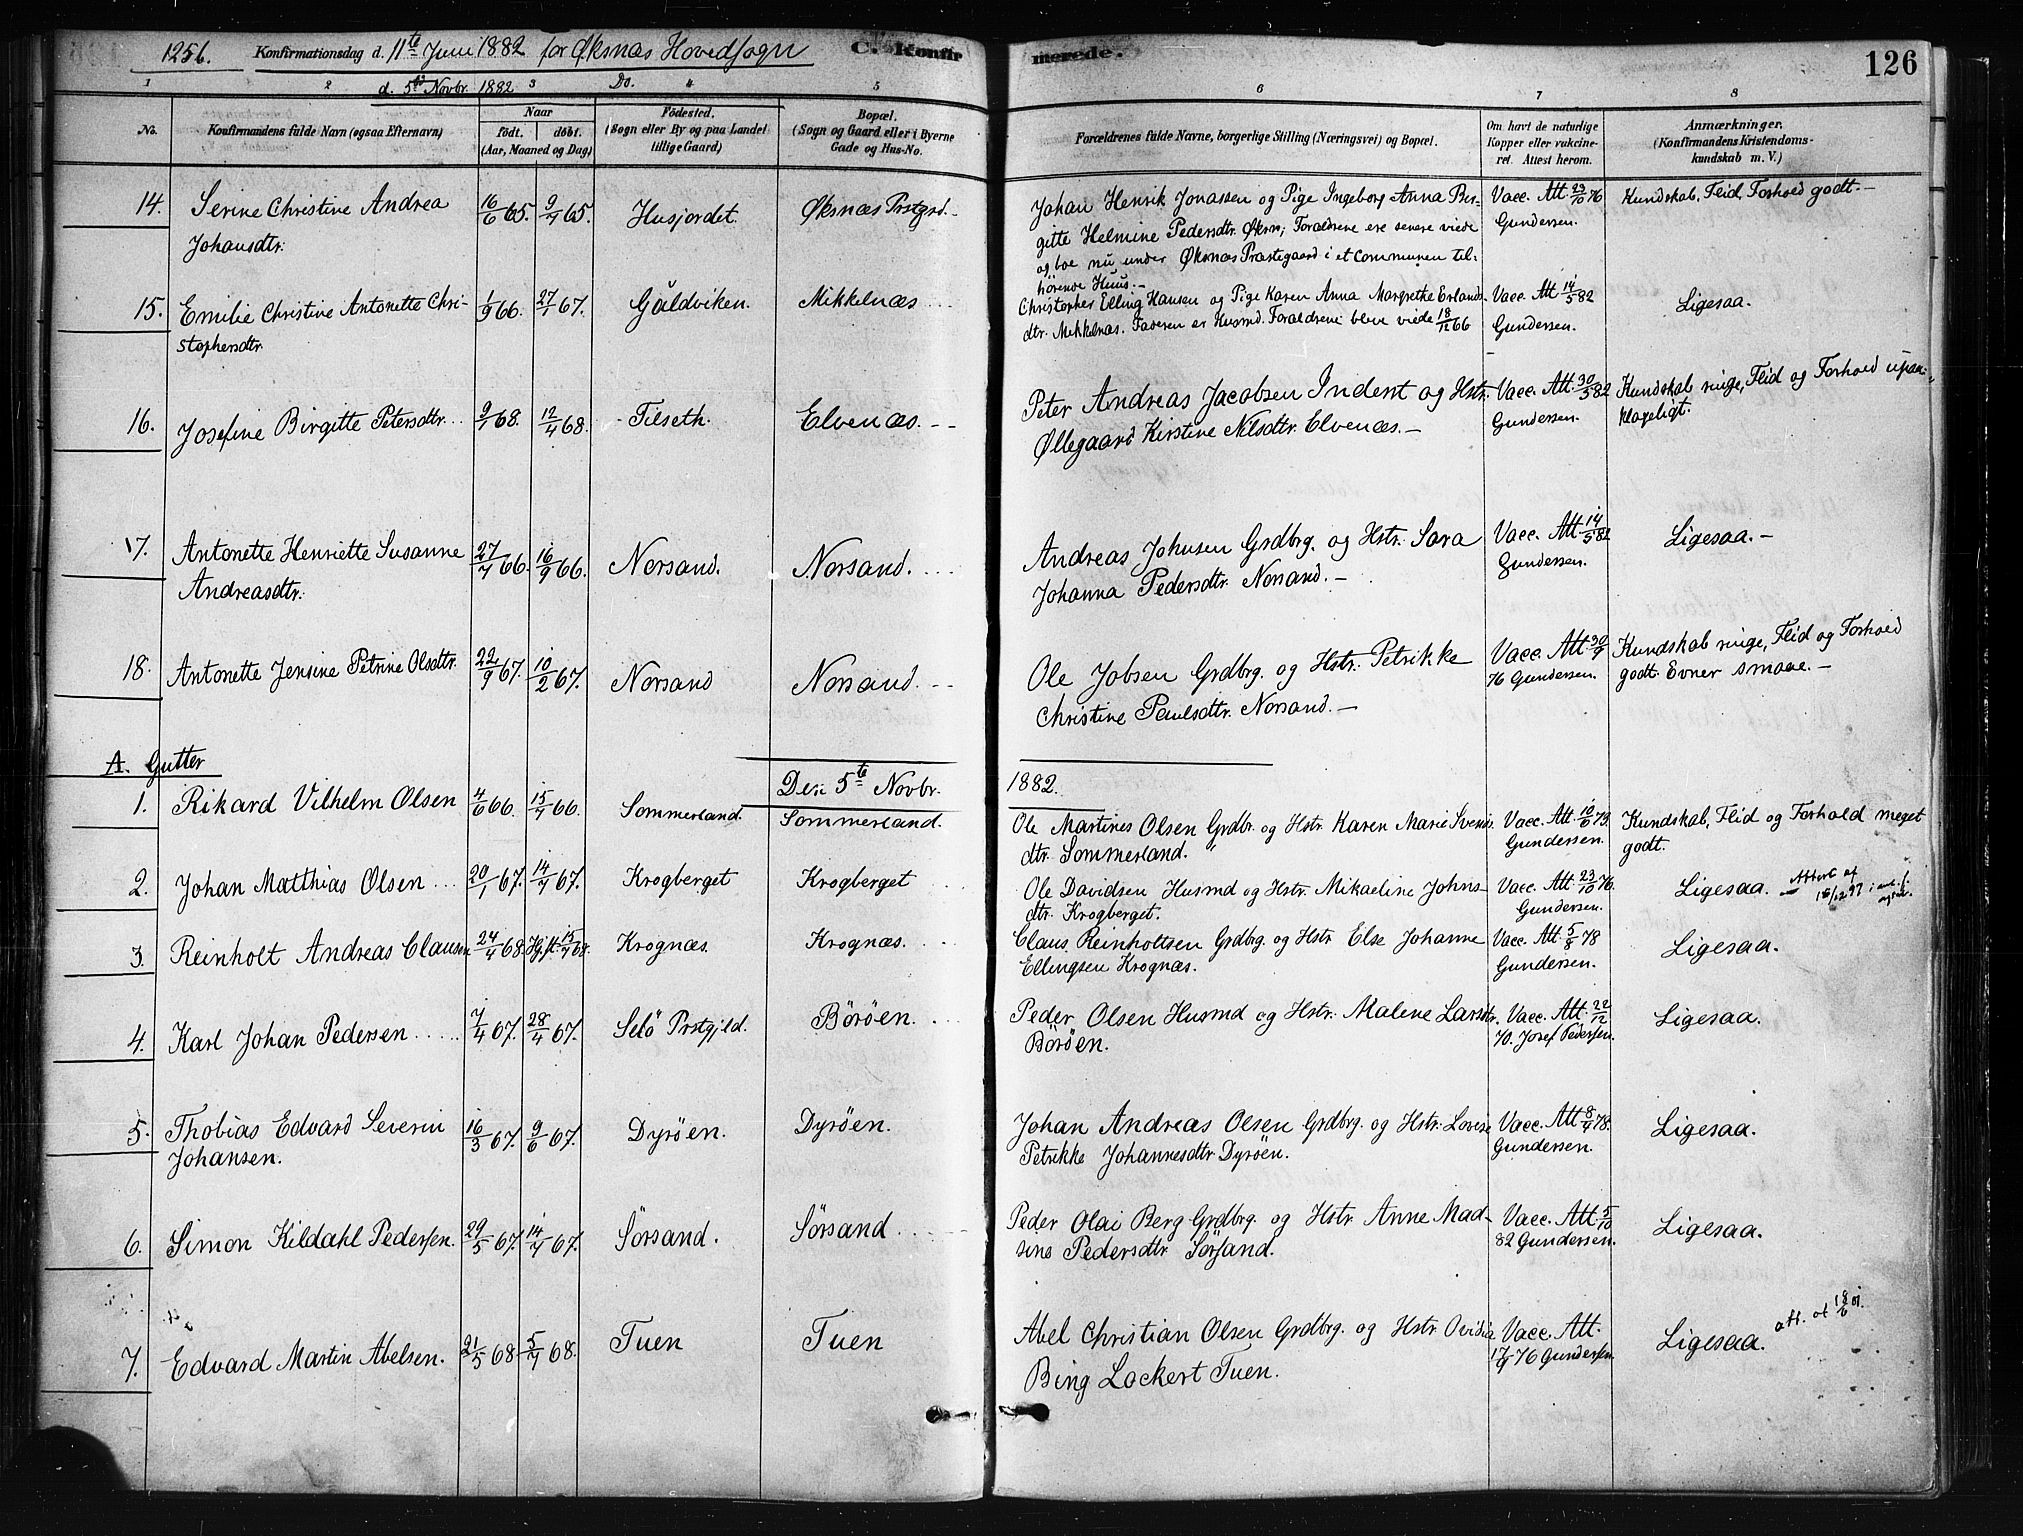 1256. Konfirmationsdag d. 11te Juni 1882 for Øksnæs Hovedsogn C. Konfirmerede. 126
d. 5te Novbr. 1882. Do.
1 2 3 4 5 6 7 8
No. Konfirmandens fulde Navn (ogsaa Efternavn) Naar født. døbt. (Aar, Maaned og Dag) Födested. (Sogn eller By og paa Landet tillige Gaard) Bopæl. (Sogn og Gaard eller i Byerne Gade og Hus-No. Forældrenes fulde Navne, borgerlige Stilling (Næringsvei) og Bopæl. Om havt de naturlige Kopper eller vaccineret. Attest herom. Anmærkninger. (Konfirmandens Kristendomskundskab m. V.)
14. Serine Christine Andrea 16/6 65. 9/7 65. Husjordet. Øksnæs Prstgrd. Johan Henrik Jonassen og Pige Ingeborg Anna Bir- Vacc. Att. 23/10 76 Kundskab, Flid, Forhold godt.
Johansdtr. gitte Helmine Pedersdtr. Øksn; Forældrene ere senere viede Gundersen.
og boe nu under Øksnæs Præstegaard i et Communen til-
hørende Huus.
15. Emilie Christine Antonette Chri- 1/9 66. 27/1 67. Gåldviken. Mikkelnæs Christopher Elling Hansen og Pige Karen Anna Margrethe Erlands- Vacc. Att 14/5 82 Ligesaa.
stophersdtr. dtr. Mikkelnæs. Faderen er Husmd. Forældrene bleve viede 18/12 66 Gundersen.
16. Josefine Birgitte Petersdtr. 9/1 68. 12/4 68. Tilseth. Elvenæs. Peter Andreas Jacobsen Indent og Hstr. Vacc. Att. 30/5 82 Kundskab ringe, Flid og Forhold upaa-
Øllegaard Kirstine Nilsdtr. Elvenæs. Gundersen. klageligt.
17. Antonette Henriette Susanne 27/7 66. 16/9 66. Norsand. Norsand. Andreas Johnsen Grdbrg. og Hstr. Sara Vacc. Att. 14/5 82 Ligesaa.
Andreasdtr. Johanna Pedersdtr. Norsand. Gundersen.
18. Antonette Jensine Petrine Olsdtr. 22/9 67. 10/2 67. Norsand Norsand. Ole Jobsen Grdbrg. og Hstr. Petrikke Vacc. Att. 30/9 Kundskab ringe, Flid og Forhold
Christine Paulsdtr. Norsand. 76 Gundersen. godt. Evner smaae.
A. Gutter Den 5te Novbr. 1882.
1. Rikard Vilhelm Olsen 4/6 66. 15/7 66. Sommerland. Sommerland. Ole Martines Olsen Grdbr. og Hstr. Karen Marie Svends- Vacc. Att. 10/6 73. Kundskab, Flid og Forhold meget
dtr. Sommerland. Gundersen. godt.
2. Johan Matthias Olsen 20/1 67. 14/7 67. Krogberget Krogberget Ole Davidsen Husmd og Hstr. Mikaeline Johns- Vacc. Att. 23/10 76. Ligesaa. Attest af 15/12 97
dtr. Krogberget. Gundersen.
3. Reinholt Andreas Clausen 24/4 68. 15/7 68. Krognæs. Krognæs. Claus Reinholtsen Grdbrg. og Hstr Else Johanne Vacc. Att. 5/8 78 Ligesaa.
Ellingsen Krognæs. Gundersen.
4. Karl Johan Pedersen 7/4 67. 28/4 67. Selö Prstgjld. Böröen. Peder Olsen Husmd og Hstr. Malene Larsdtr. Vacc. Att. 22/12 Ligesaa.
Böröen. 70. Josef Pedersen.
5. Thobias Edvard Severin 16/3 67. 9/6 67. Dyröen. Dyröen. Johan Andreas Olsen Grdbrg. og Hstr. Lovise Vacc. Att. 8/4 78. Ligesaa.
Johansen. Petrikke Johannesdtr Dyröen. Gundersen.
6. Simon Kildahl Pedersen. 29/5 67. 14/7 67. Sörsand. Sörsand Peder Olai Berg Grdbrg. og Hstr. Anne Mad- Vacc. Att 5/10 Ligesaa.
sine Pedersdtr Sörsand. 82 Gundersen.
7. Edvard Martin Abelsen. 21/5 68 5/7 68. Tuen Tuen Abel Christian Olsen Grdbrg. og Hstr Ovidia Vacc. Att. Ligesaa. att. af 18/6 01.
Bing Lockert Tuen. 17/4 76 Gundersen.